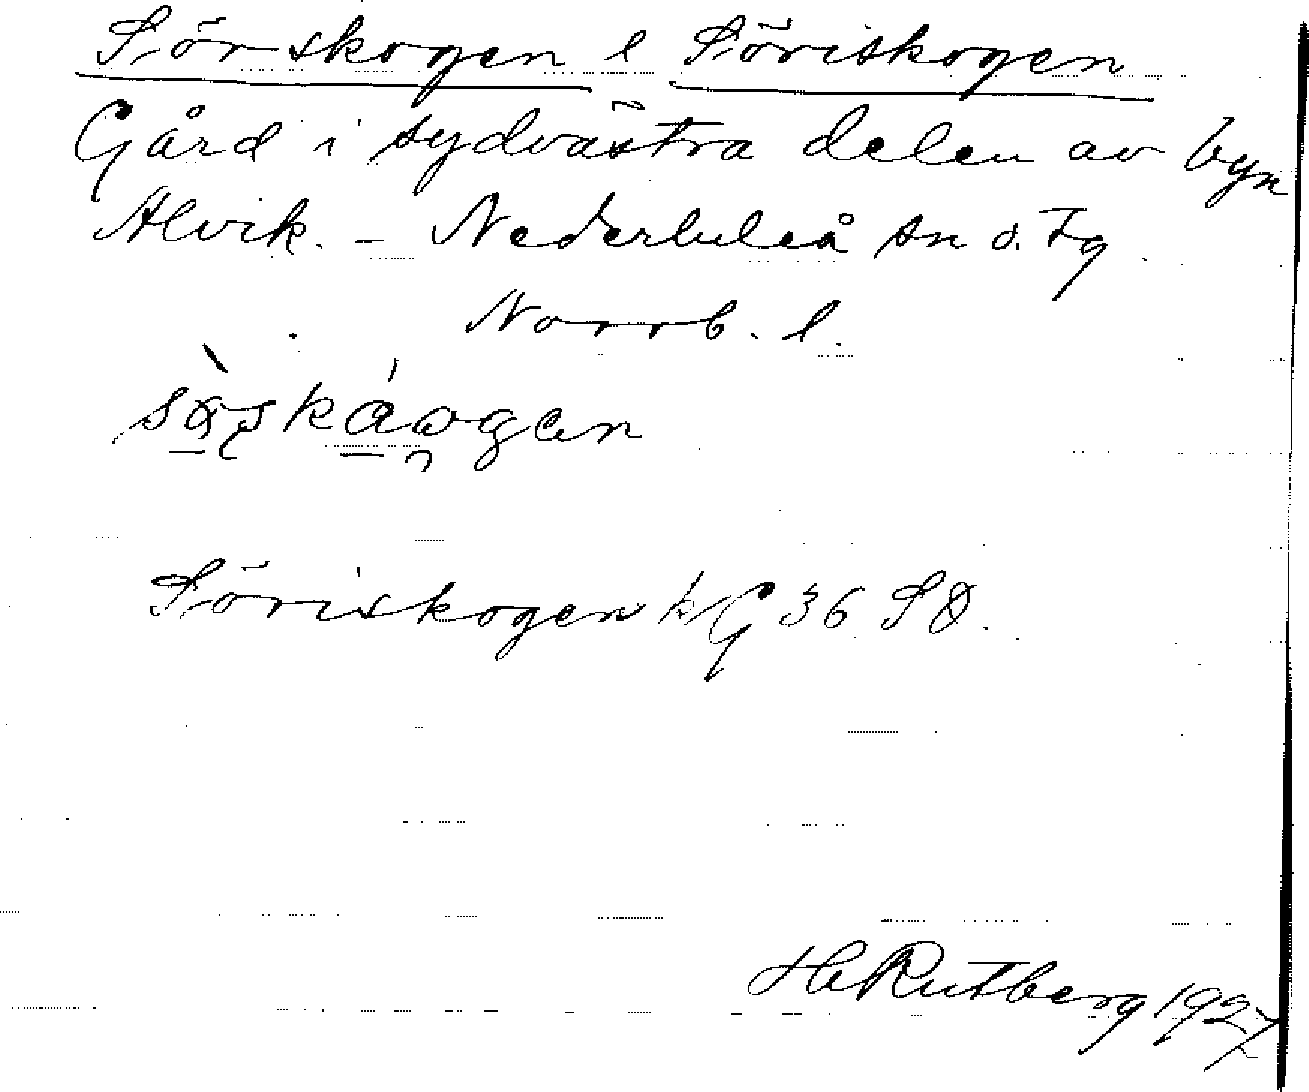 Sörskogen l Söriskogen
Gård i sydvästra delen av byn
Alvik. - Nederluleå sn o. Tg
Norrb. l.
Söriskogen k G 36 SO.
H Rutberg 1927